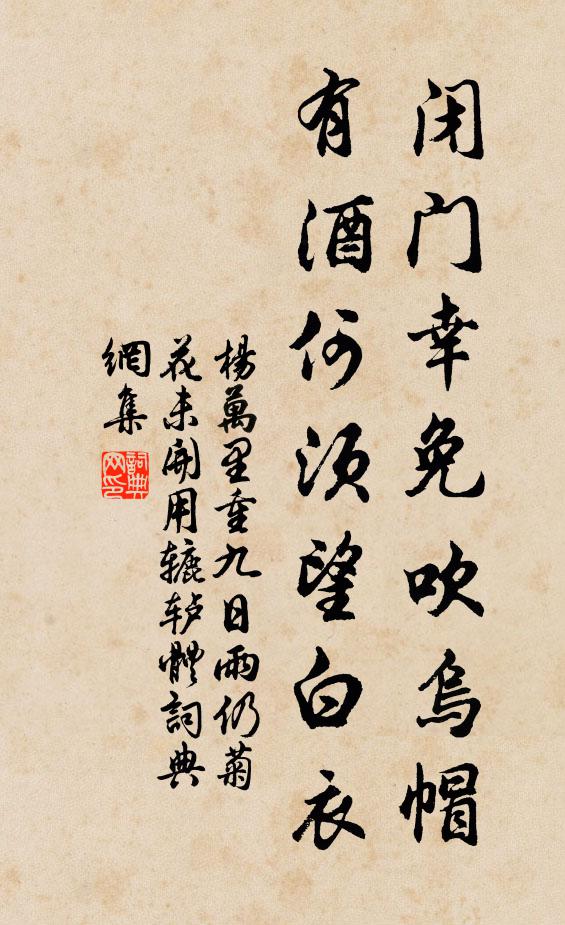 闭门幸免吹乌帽
有酒何须望白衣
楊萬里重九日雨仍菊
花未開用辘轳體詞典
網集
詞典
网印